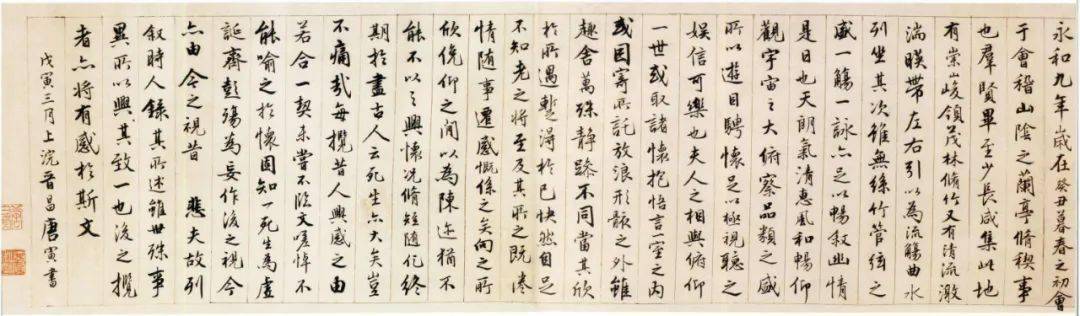 永和九年歲在癸丑暮春之初會
于會稽山陰之蘭亭脩稧事
也羣賢畢至少長咸集此地
有崇峻領茂林脩竹又有清流激
湍暎帶左右引以為流觴曲水
列坐其次雖無絲竹管絃之
盛一觴一詠亦足以暢敘幽情
是日也天朗氣清惠風和暢仰
觀宇宙之大俯察品類之盛
所以遊目騁懷足以極視聽之
娛信可樂也夫人之相與俯仰
一世或取諸懷抱悟言一室之內
或因寄所託放浪形骸之外雖
趣舍萬殊靜躁不同當其欣
於所遇蹔得於己快然自足
不知老之將至及其所之既惓
情隨事遷感慨係之矣向之所
欣俛仰之間以為陳迹猶不
能不以之興懷況脩短隨化終
期於盡古人云死生亦大矣豈
不痛哉每攬昔人興感之由
若合一契未嘗不臨文嗟悼不
能喻之於懷固知一死生為虛
誕齊彭殤為妄作後之視今
亦由今之視昔 悲夫故列
叙時人錄其所述雖世殊事
異所以興其致一也後之攬
者亦將有感於斯文
戊寅三月上浣晉昌唐寅書